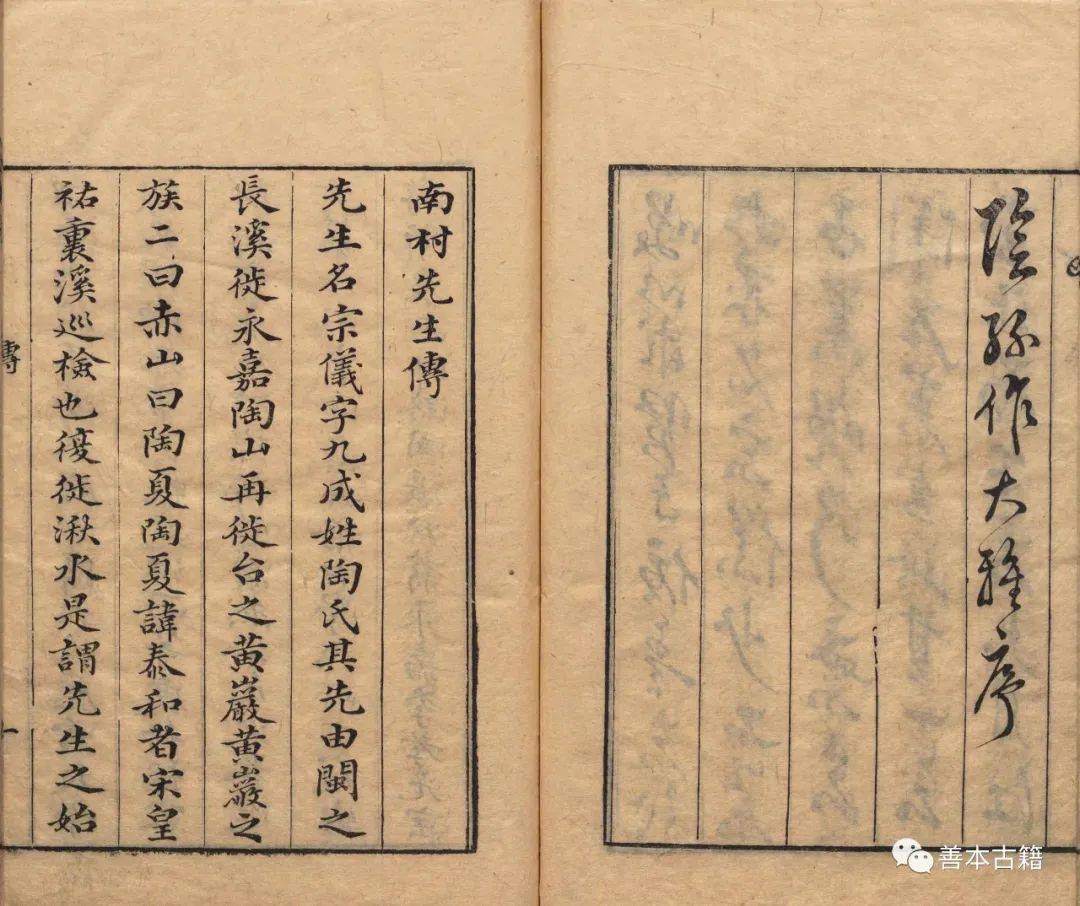 陰孫作大雅序
南村先生傳
先生名宗儀字九成姓陶氏其先由閩之
長溪徙永嘉陶山再徙台之黃巖黃巖之
族二曰赤山曰陶夏陶夏諱泰和者宋皇
祐裏溪巡檢也後徙湫水是謂先生之始
傳
一
善本古籍